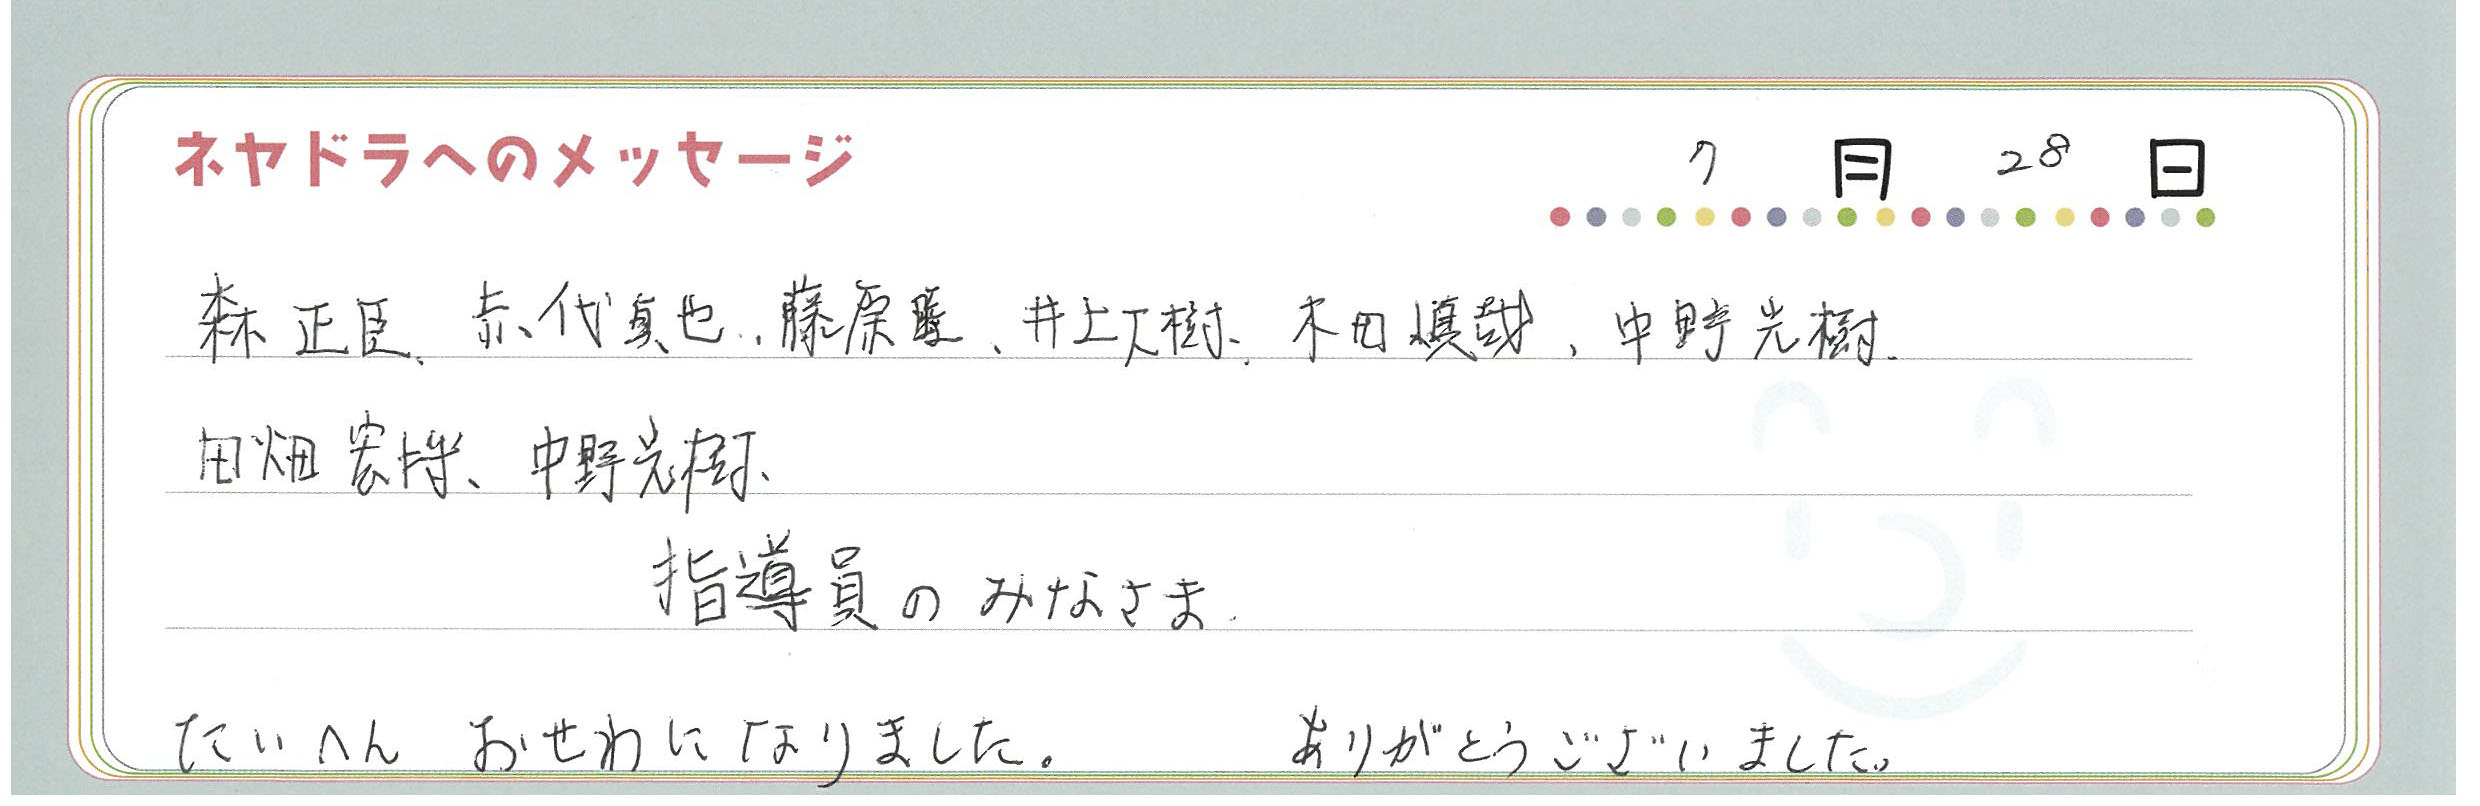 ネヤドラへのメッセージ
7月28日
森正臣、赤代真也、藤原、井上大樹、木田慎哉、中野光樹、
田畑宏樹、中野光樹、
指導員のみなさま
たいへん おせわになりました。 ありがとうございました。